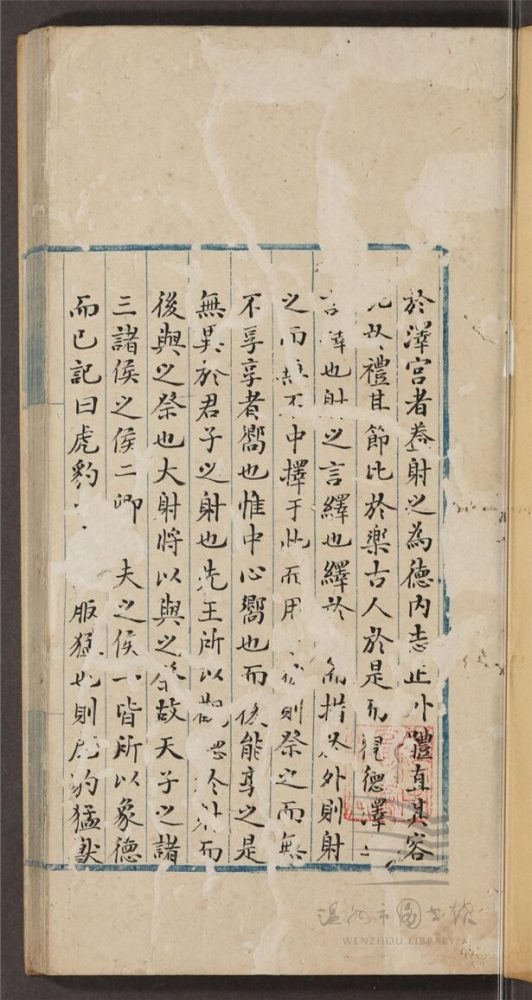 於澤宮者蓋射之為德內志正外體直其容
比於禮其節比於樂古人於是而得德澤之
言擇也射之言繹也繹於而措於外則射
之而不中擇于此而用則祭之而無
不孚享者嚮也惟中心嚮也而後能享之是
無異於君子之射也先王所以觀德於射而
後與之祭也大射將以與之祭故天子之諸
三諸侯之侯二卿夫之侯一皆所以象德
而已記曰虎豹服猛也則虎豹猛獸
溫州市圖書館
WENZHOU LIBRARY